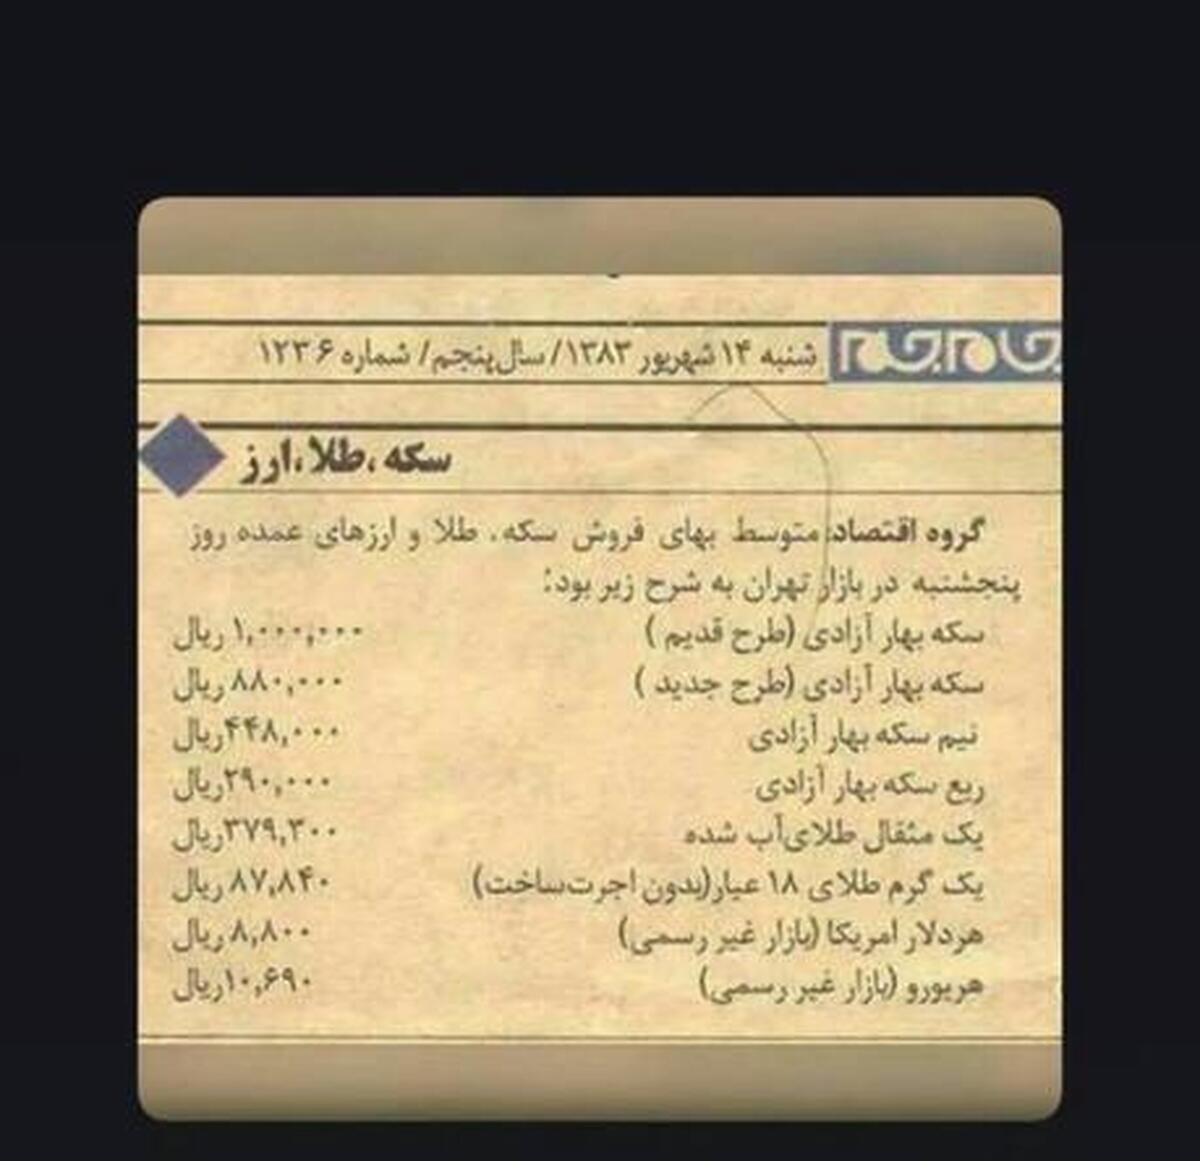 جام‌جم
شنبه ۱۴ شهریور ۱۳۸۳/ سال پنجم/ شماره ۱۲۳۶
سکه،طلا،ارز
گروه اقتصاد: متوسط بهای فروش سکه، طلا و ارزهای عمده روز
پنجشنبه در بازار تهران به شرح زیر بود:
سکه بهار آزادی (طرح قدیم ) ۱,۰۰۰,۰۰۰ ریال
سکه بهار آزادی (طرح جدید ) ۸۸۰,۰۰۰ ریال
نیم سکه بهار آزادی ۴۴۸,۰۰۰ریال
ربع سکه بهار آزادی ۲۹۰,۰۰۰ریال
یک مثقال طلای‌آب شده ۳۷۹,۳۰۰ریال
یک گرم طلای ۱۸ عیار(بدون اجرت‌ساخت) ۸۷,۸۴۰ ریال
هردلار امریکا (بازار غیر رسمی) ۸,۸۰۰ ریال
هریورو (بازار غیر رسمی) ۱۰,۶۹۰ریال